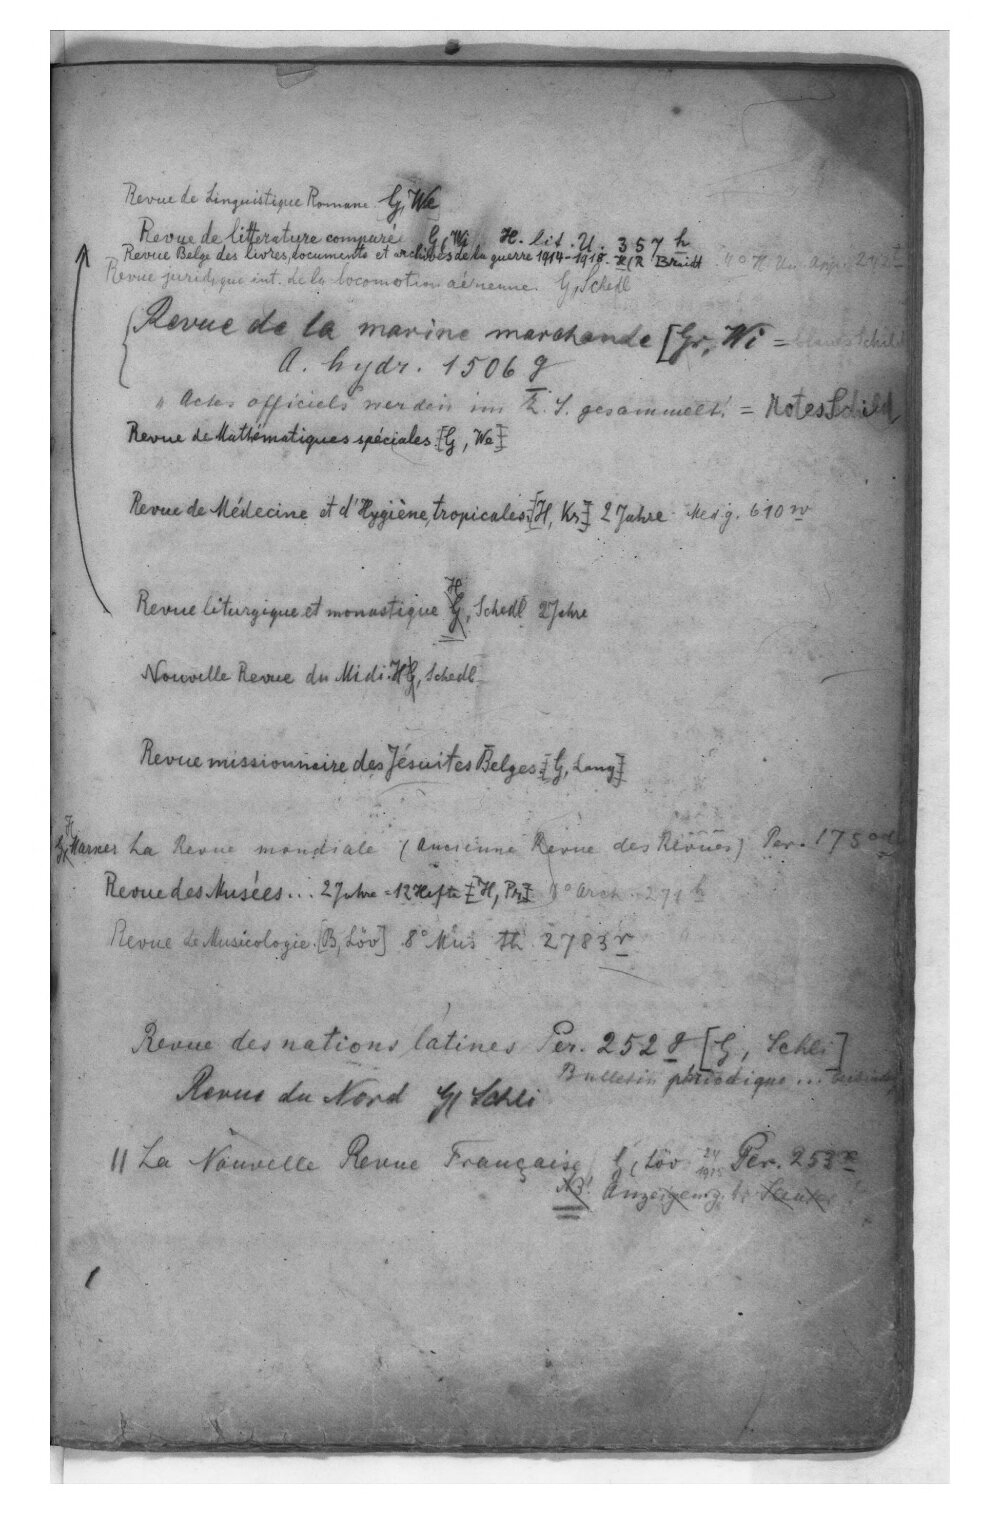 Revue de Linguistique Romane G, We
Revue de litterature comparé G, Wi H. lit. U. 357 h
Revue Belge des livres, documents et archives de la guerre 1914-1918. H/R Braidt 4° H. Un. App. 242
Revue juridique int. de la locomotion aérienne. G, Schedl
Revue de la marine marchande [Gr, Wi = blaues Schild
A. hydr. 1506 g
" Actes officiels werden im Z. S. gesammelt! = Rotes Schild
Revue de Mathématiques spéciales [G, We]
Revue de Médecine et d'Hygiène tropicales [H, Kr] 2 Jahre Med. g. 610 w
H
Revue liturgique et monastique G, Schedl 2 Jahre
Nouvelle Revue du Midi. H G, Schedl
Revue missionnaire des Jésuites Belges [G, Lang]
H
G, Harner La Revue mondiale (Ancienne Revue des Revues) Per. 175
Revue des Musées... 2 Jahre = 12 Hefte [H, Pr] 8° Arch. 271 h
Revue de Musicologie. [B, Löv] 8° Mus. th. 2783 r
Revue des nations latines Per. 252 g [G, Schli]
Bulletin périodique ...
Revue du Nord G, Schli
11 La Nouvelle Revue Française G, Löv Per. 253
NB! Anzeigen